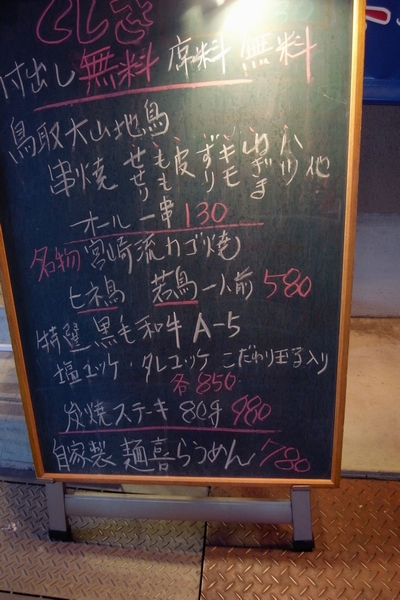 くしき
付出し 無料 席料 無料
鳥取大山地鳥
串焼 せせり もも 皮 ずり キモ ハツ 他
オール一串130
名物 宮崎流カゴ焼
ヒネ鳥 若鳥 一人前 580
特選 黒毛和牛 A-5
塩ユッケ・タレユッケ こだわり玉子入り
各850
炭焼ステーキ 80g 980
自家製 麺喜らうめん 780